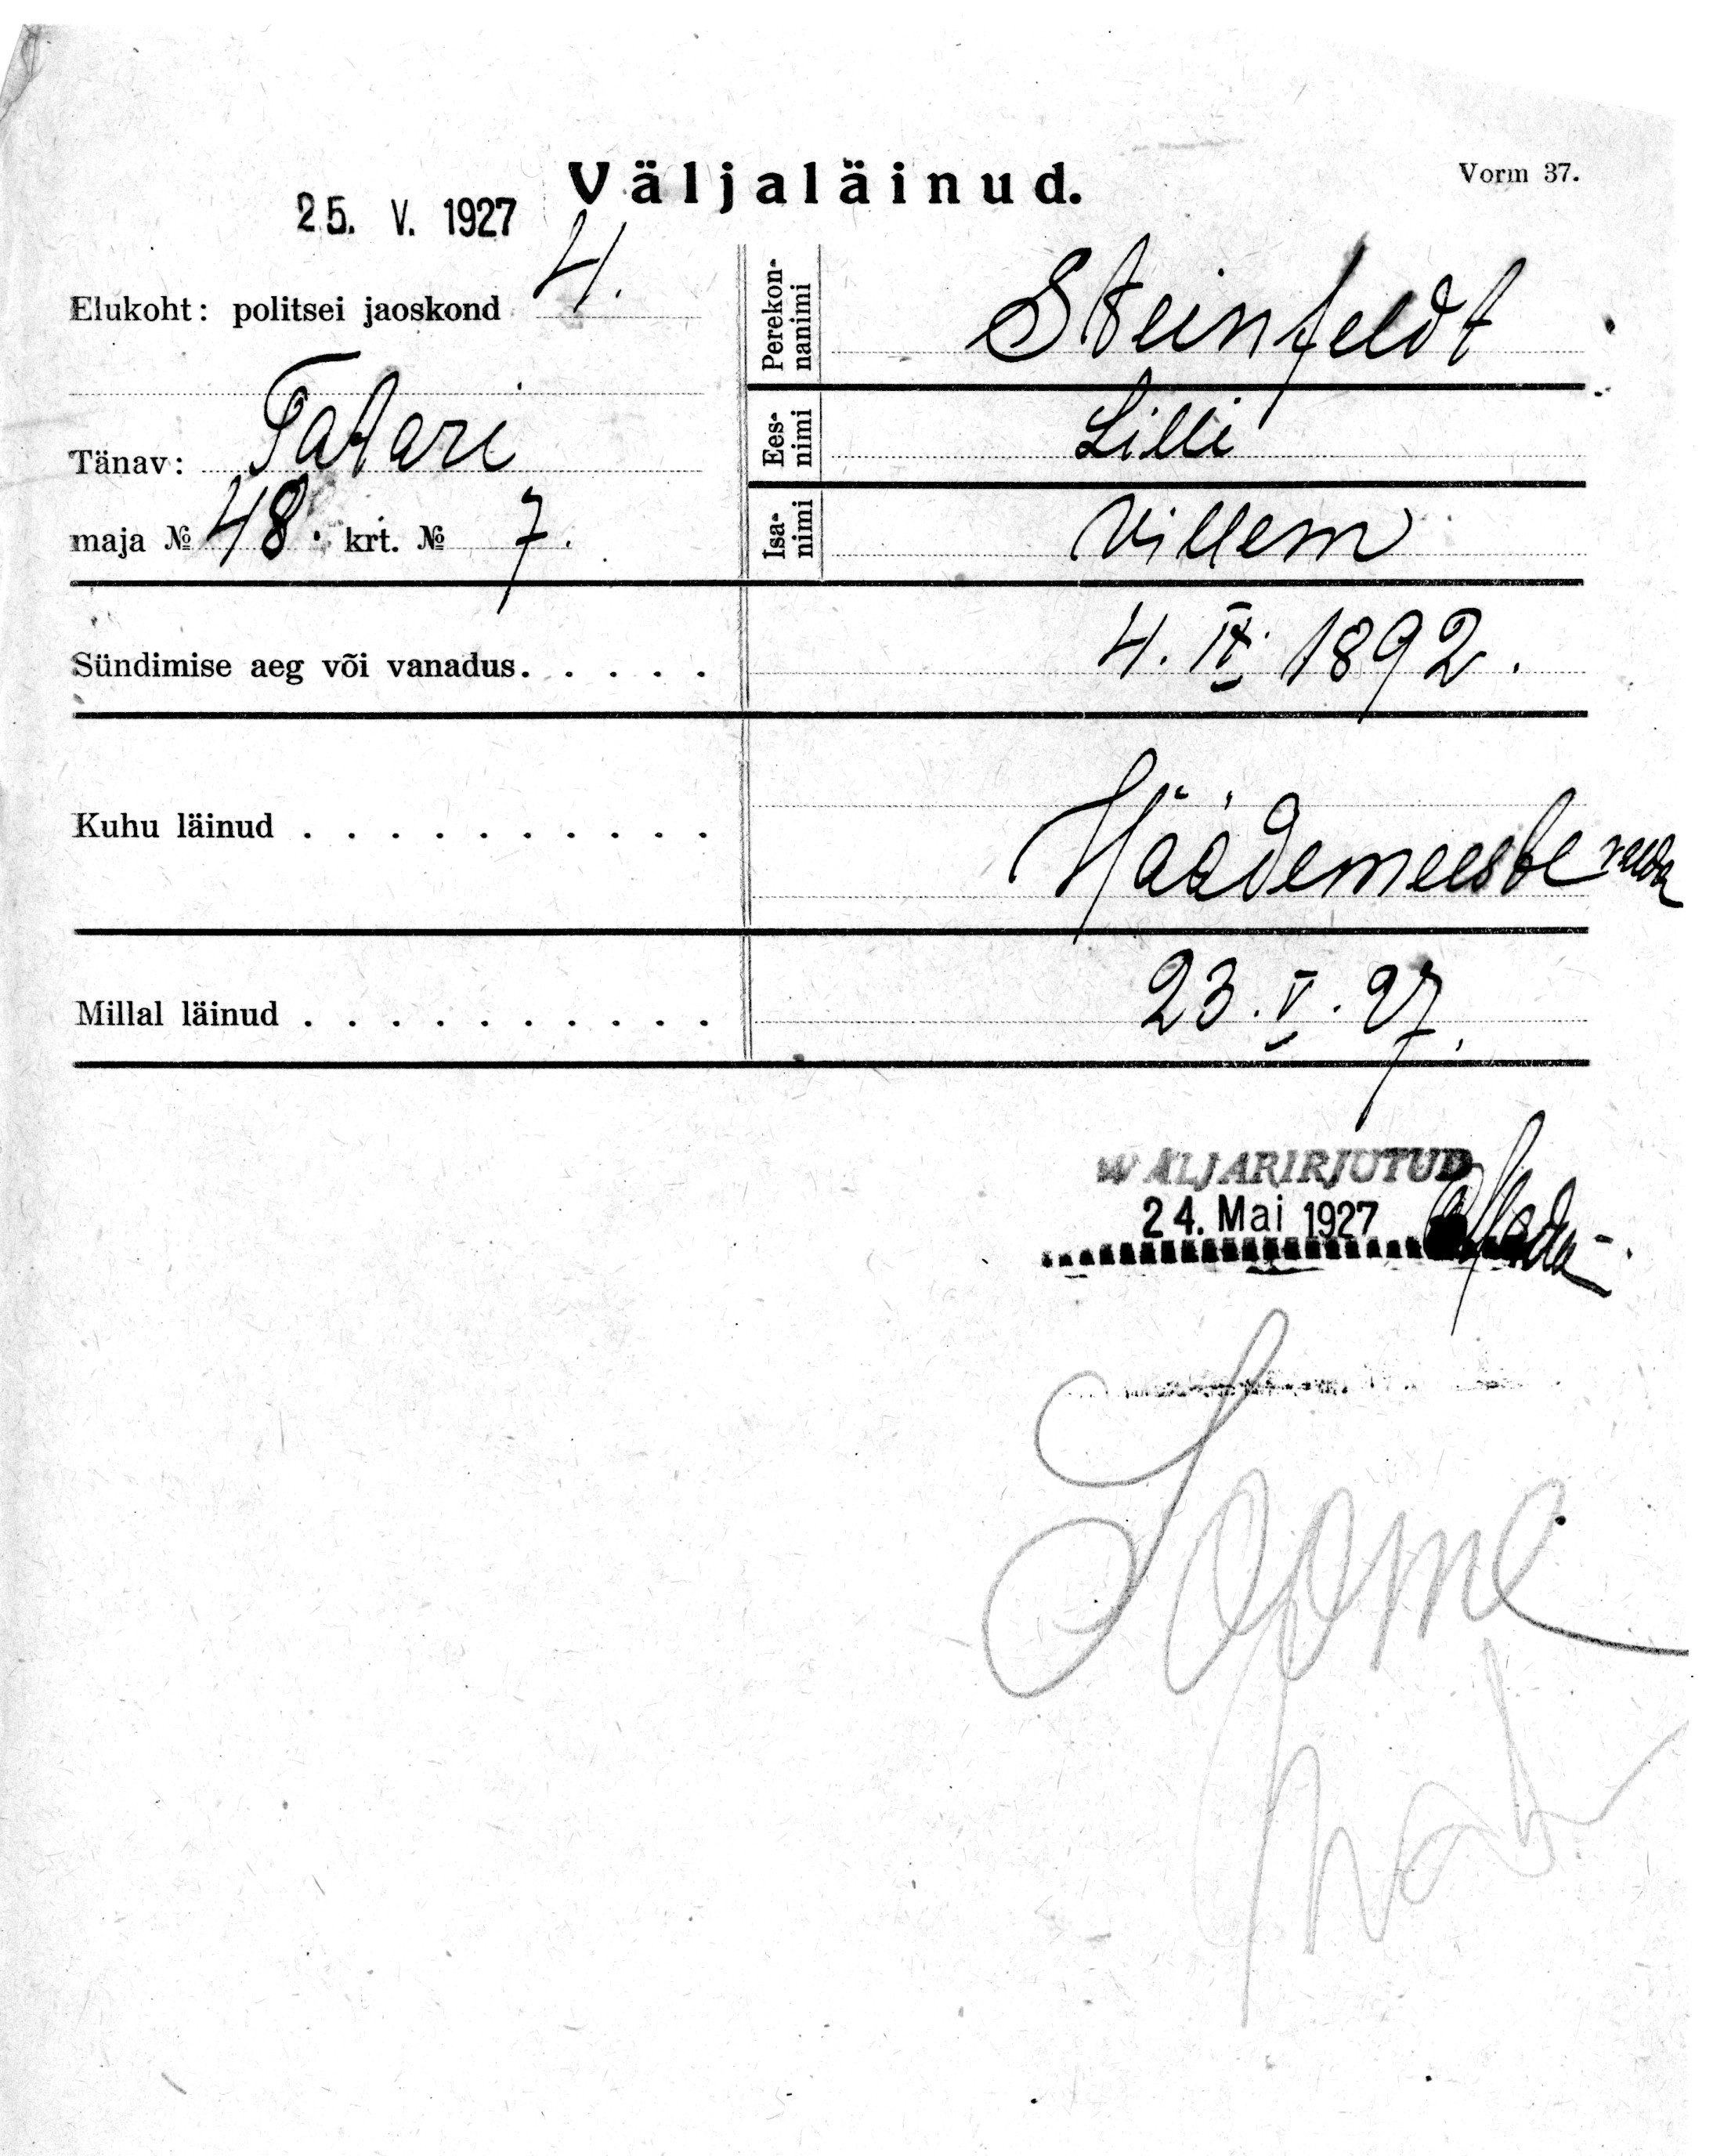 Väljaläinud.
Vorm 37.
25. V. 1927
Elukoht: politsei jaoskond 4.
Tänav: Tatari
maja № 48. krt. № 7.
Perekon-
nanimi
Steinfeldt
Ees-
nimi
Lilli
Isa-
nimi
Villem
Sündimise aeg või vanadus. . . . .
4. IX. 1892.
Kuhu läinud . . . . . . . . . .
Häädemeeste valda
Millal läinud . . . . . . . . . .
23. V. 27.
WÄLJARIRJUTUD
24. Mai 1927